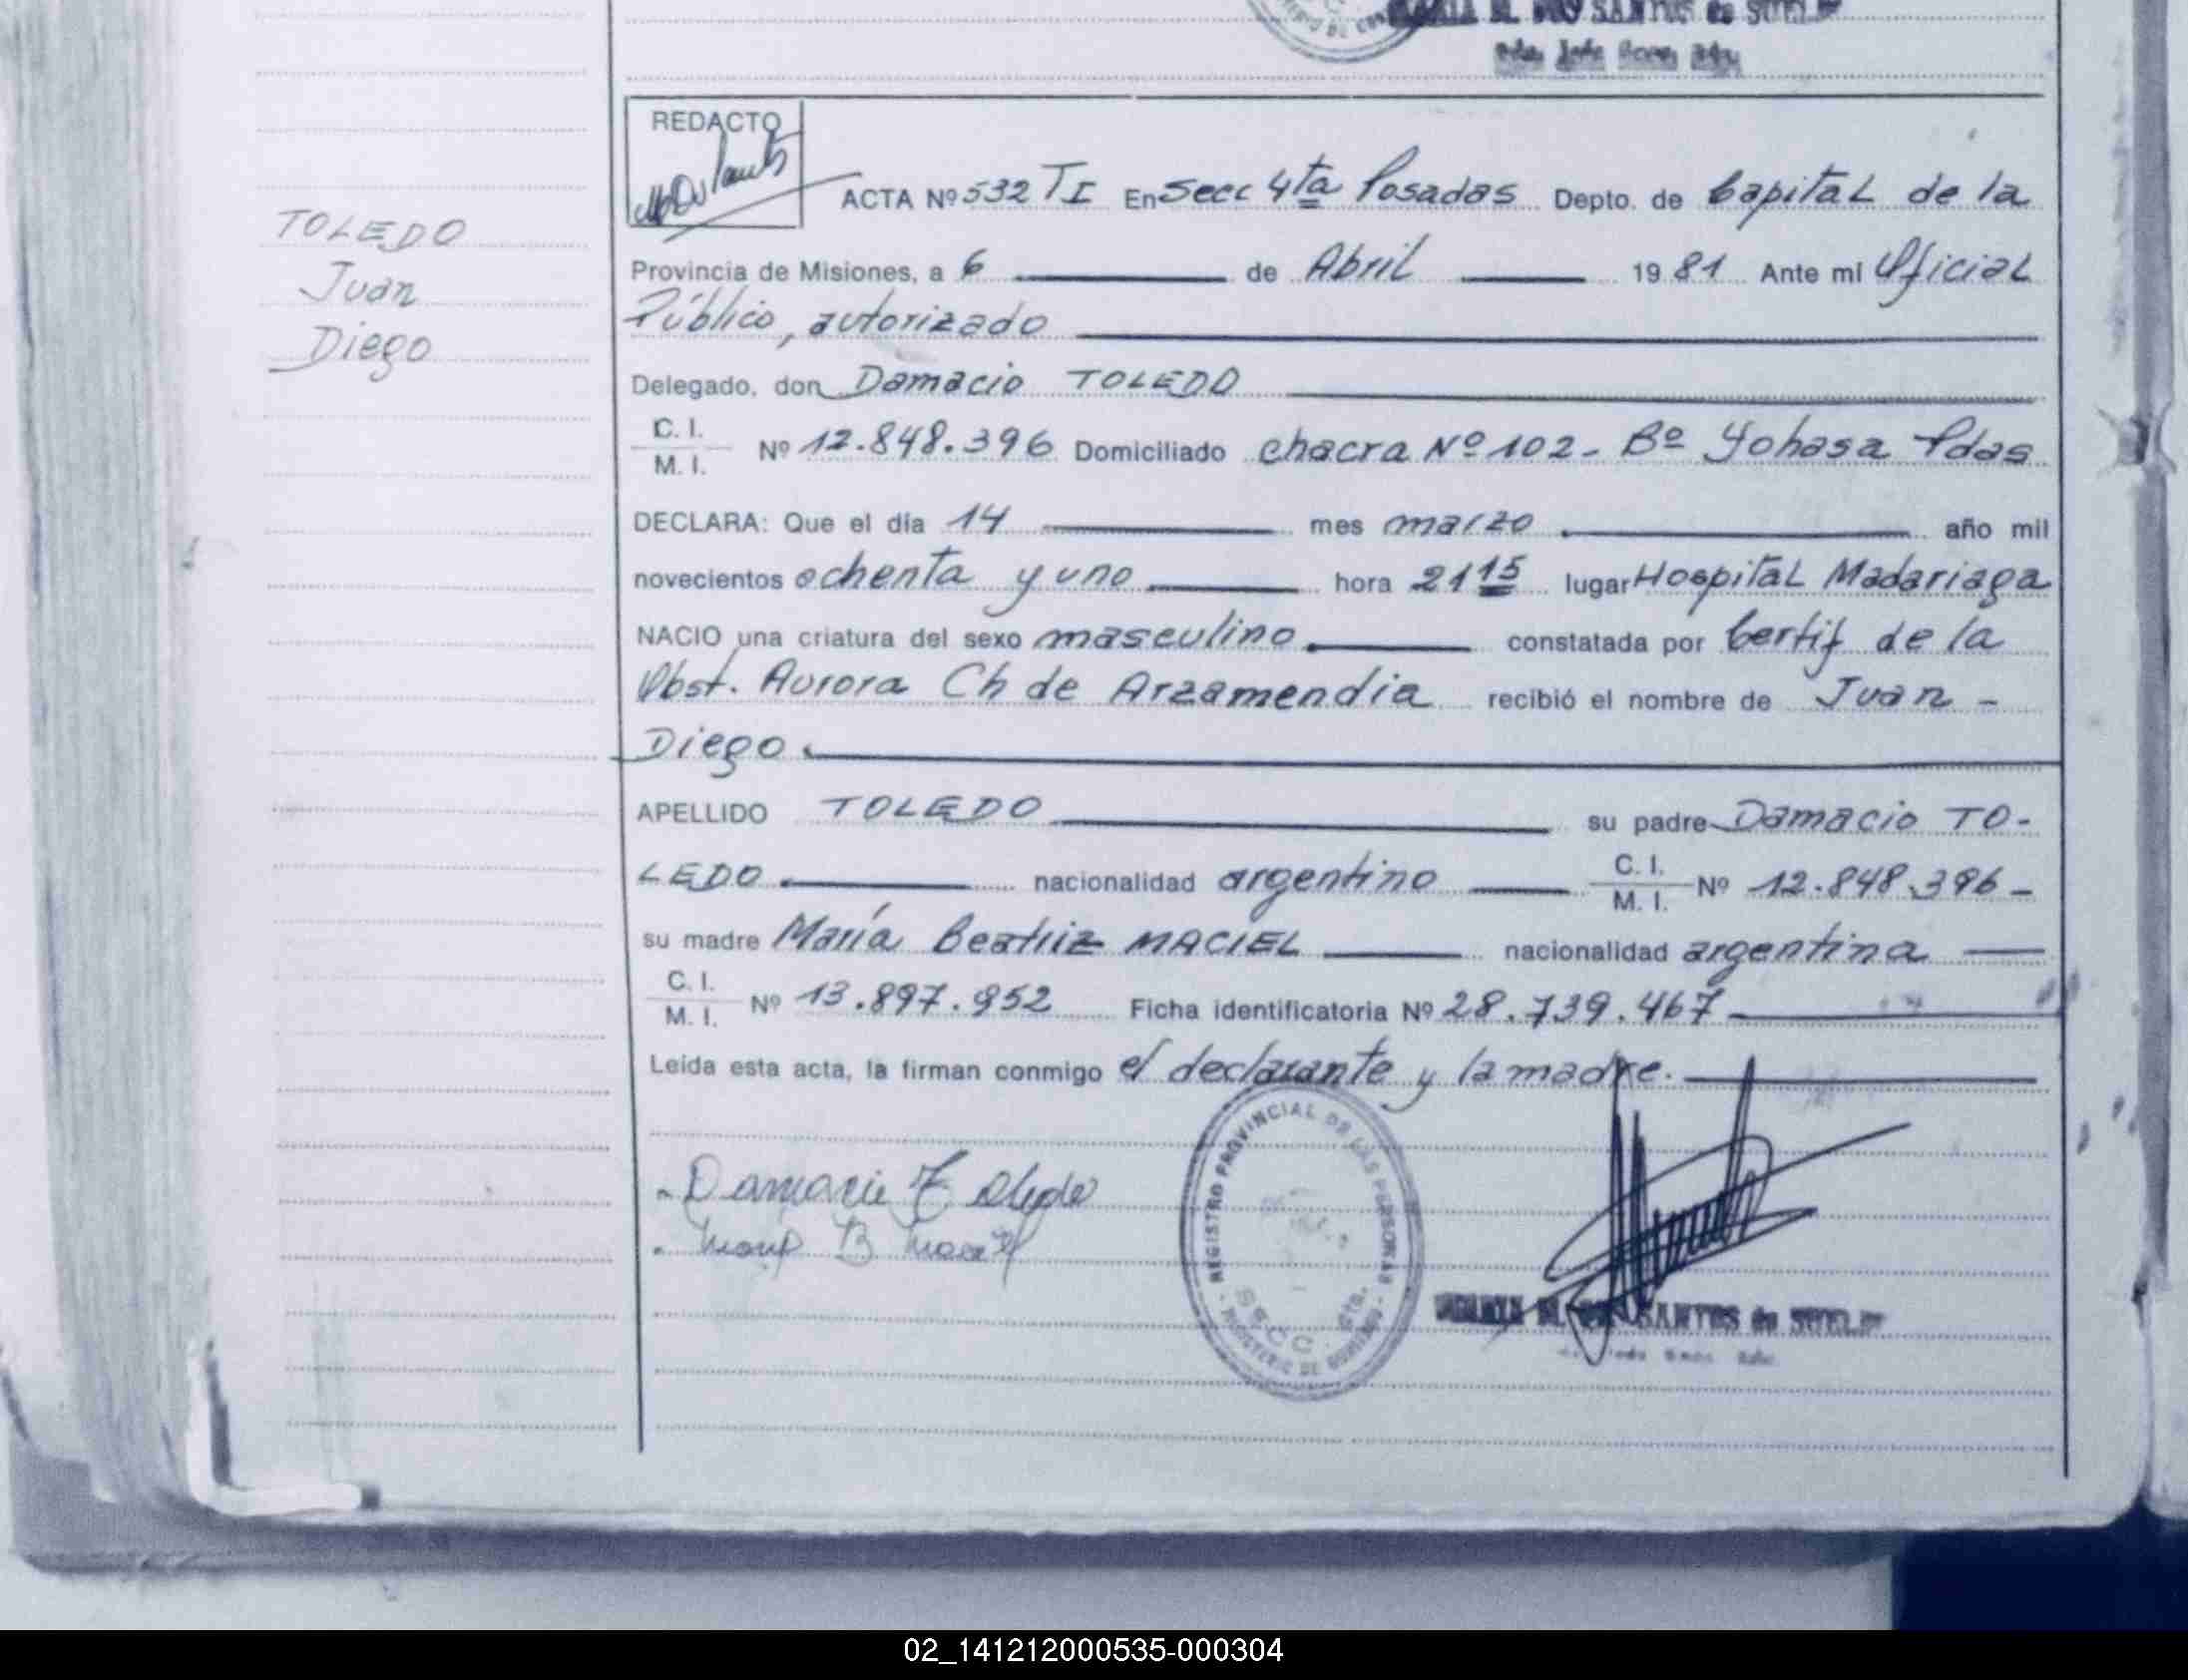 SANTOS de SUELDO
TOLEDO
Juan
Diego
REDACTO
ACTA Nº 532 TI En Secc 4ta Posadas Depto. de Capital de la
Provincia de Misiones, a 6 de Abril 1981 Ante mi Oficial
Público, autorizado
Delegado, don Damacio TOLEDO
C. I.
M. I. Nº 12.848.396 Domiciliado chacra Nº 102 - Bº Yohasa Pdas
DECLARA: Que el día 14 mes marzo año mil
novecientos ochenta y uno hora 21 15 lugar Hospital Madariaga
NACIO una criatura del sexo masculino constatada por Certif de la
Obst. Aurora Ch de Arzamendia recibió el nombre de Juan -
Diego
APELLIDO TOLEDO su padre Damacio TO-
LEDO nacionalidad argentino C. I. M. I. Nº 12.848.396 -
su madre María Beatriz MACIEL nacionalidad argentina
C. I.
M. I. Nº 13.897.952 Ficha identificatoria Nº 28.739.467
Leída esta acta, la firman conmigo el declarante y la madre.
REGISTRO PROVINCIAL DE LAS PERSONAS
SECC. 4ta.
MINISTERIO DE GOBIERNO
Damacio Toledo
B
SANTOS de
02_141212000535-000304